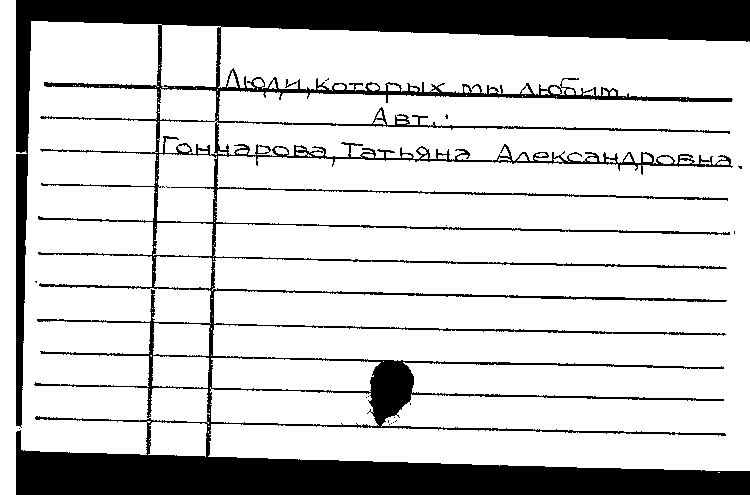 Люди, которых ты любит.
Авт.:
Гончарова, Татьяна Александровна.